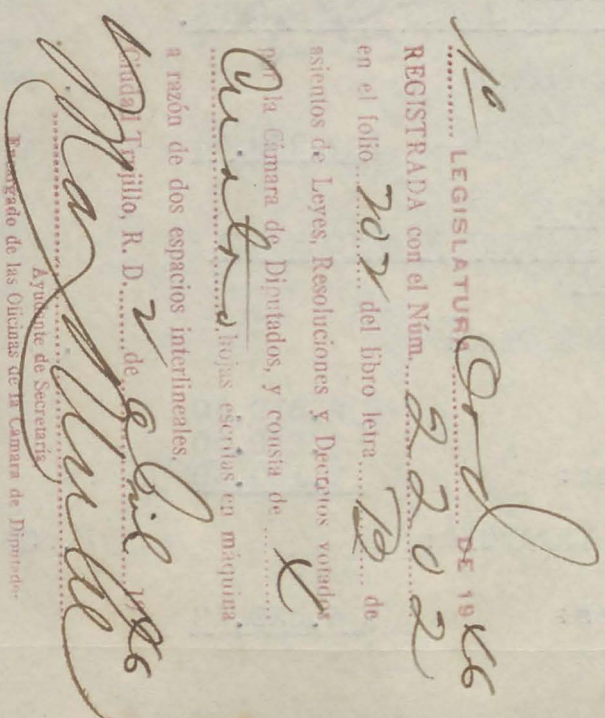 1ª LEGISLATURA Ord DE 1946
REGISTRADA con el Núm. 2202
en el folio 202 del libro letra B de
asientos de Leyes, Resoluciones y Decretos votados
por la Cámara de Diputados, y consta de
hojas escritas en máquina
a razón de dos espacios interlineales.
Ciudad Trujillo, R. D. 2 de abril 1946
Ayudante de Secretaría
Encargado de las Oficinas de la Camara de Diputados